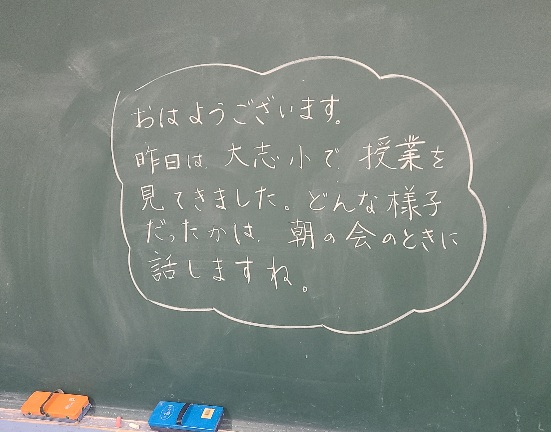 おはようございます。
昨日は、大志小で、授業を
見てきました。どんな様子
だったかは、朝の会のときに
話しますね。